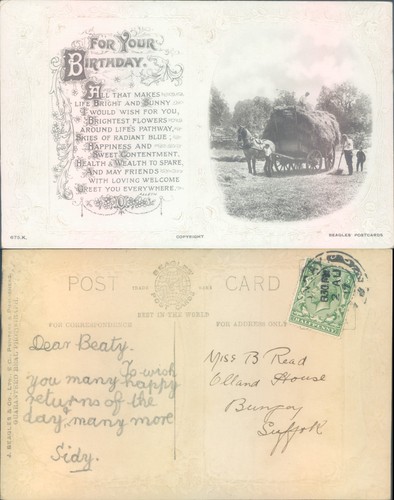 For Your
Birthday.
All that makes
life Bright and Sunny
I would wish for you,
Brightest flowers
around life's pathway,
Skies of radiant blue;
Happiness and
Sweet Contentment,
Health & Wealth to spare,
And may friends
with loving welcome
Greet you everywhere.
672.K.
COPYRIGHT.
BEAGLES POSTCARDS
POST CARD
TRADE
MARK
BEAGLES
POSTCARDS
BEST IN THE WORLD
FOR CORRESPONDENCE
FOR ADDRESS ONLY
J. BEAGLES & CO. LTD. E.C. PRINTED & PUBLISHED.
Dear Beaty.
To wish
you many happy
returns of the
day & many more
Sidy.
Miss B Read
Olland House
Bungay
Suffolk
HALFPENNY